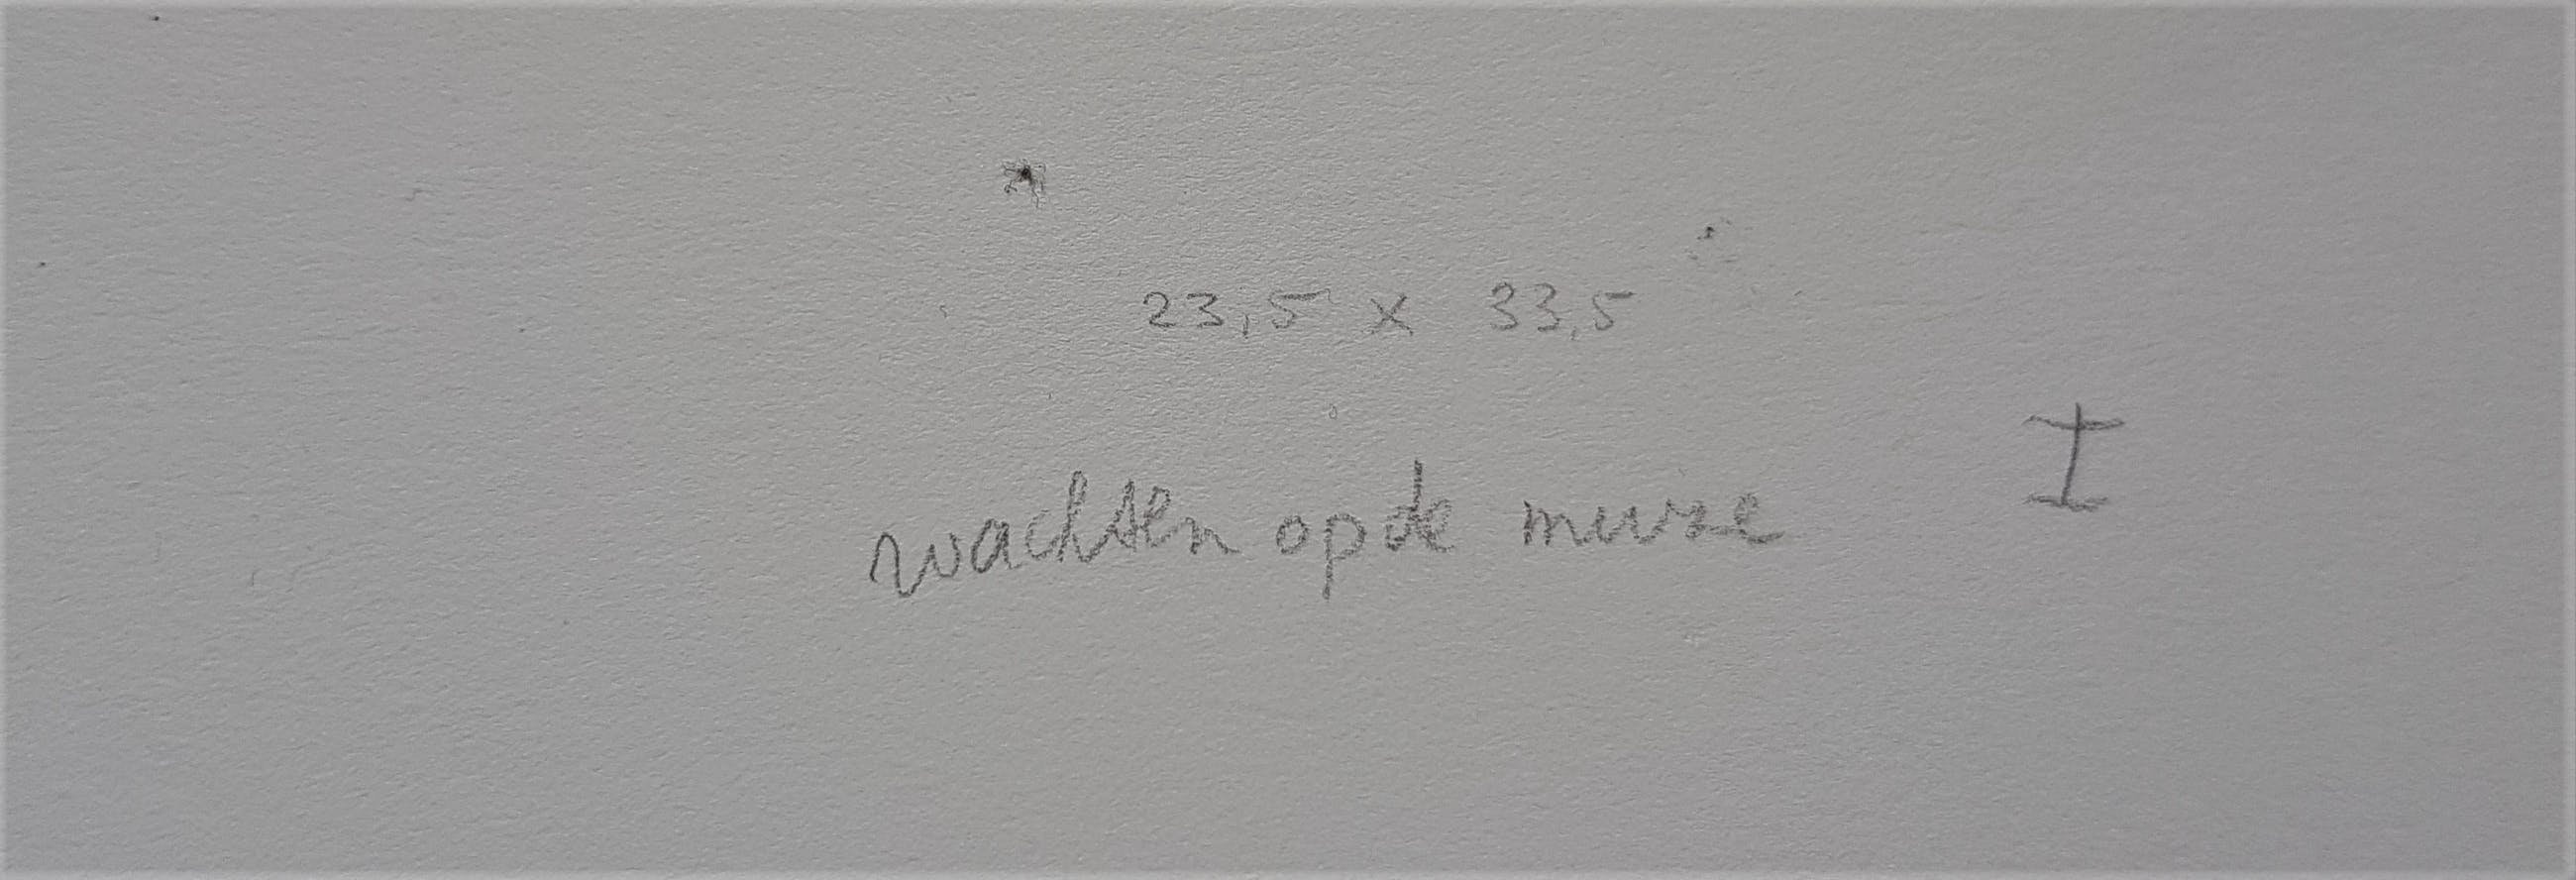 23,5 x 33,5
wachten op de muze I